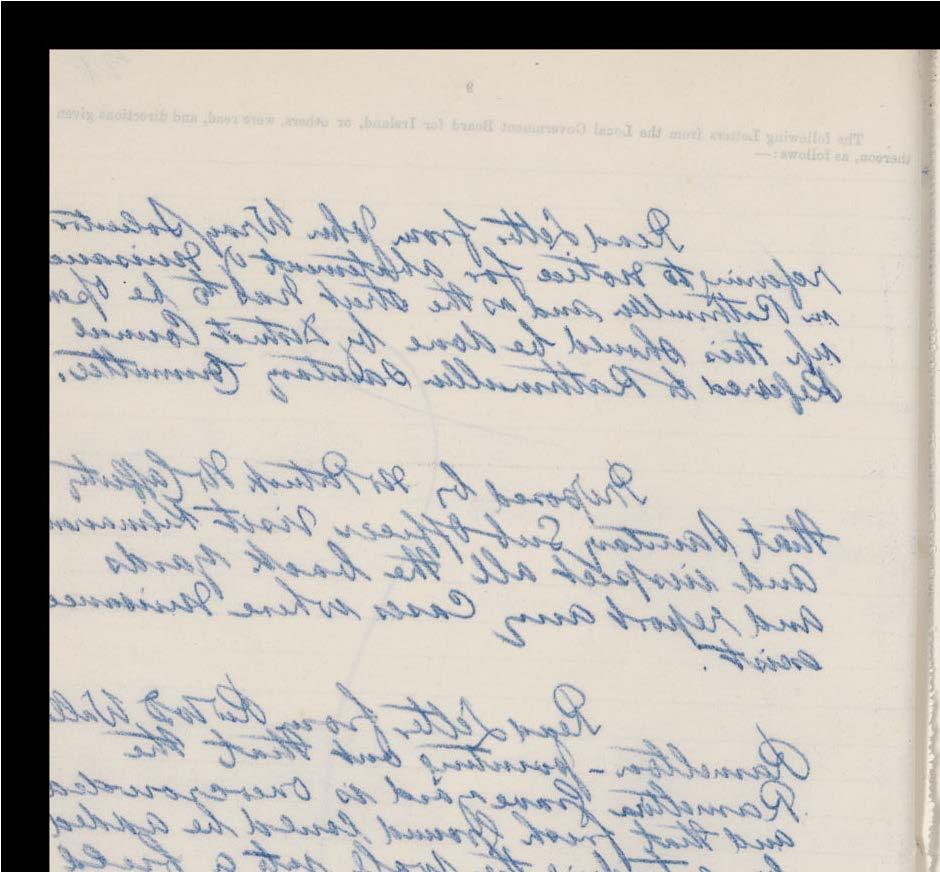 9
The following Letters from the Local Government Board for Ireland, or others, were read, and directions given
thereon, as follows:—
Read Letter from John Wray Solicitor
referring to notice for abatement of Nuisance
in Rathmullen and as the street had to be open
up this should be done by District Council
Refered to Rathmullen Sanitary Committee.
Proposed by Mr Patrick McCafferty
that Sanitary Sub Officer visit Kilmacren
and inspect all the back yards
and report any Cases where Nuisance
exist.
Read Letter from Rev W D
Ramelton - pointing out that the
Ramelton Graveyard is Overcrowded
and that fresh Ground could be added
the wall